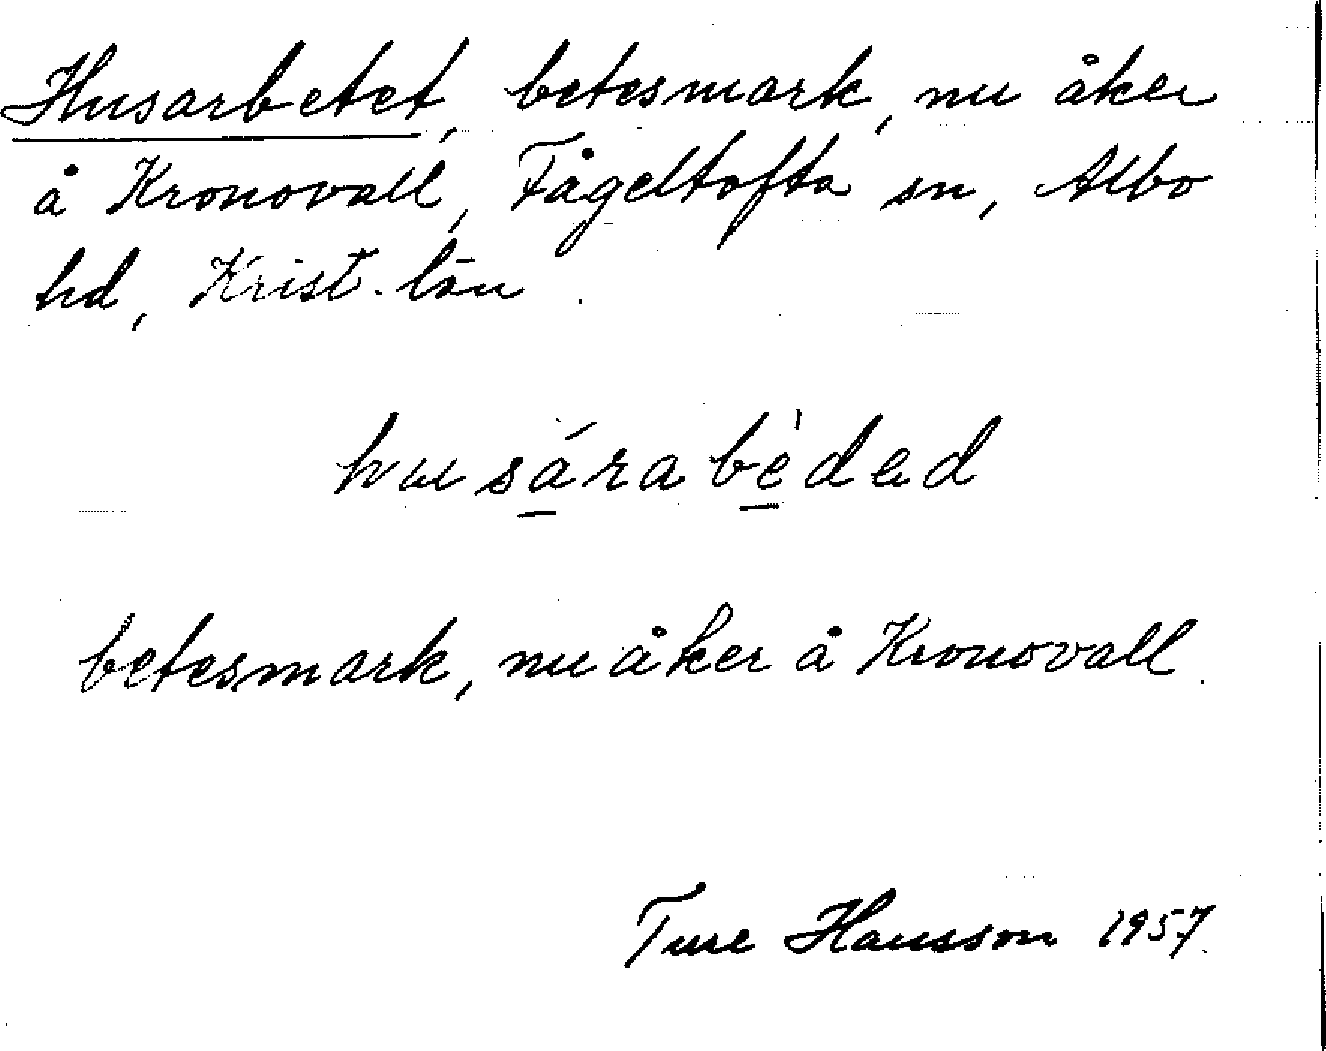 Husarbetet, betesmark, nu åker
å Kronovall, Fågeltofta sn, Albo
hd, Krist. län.
husárabèded
betesmark, nu åker å Kronovall.
Ture Hansson 1957.